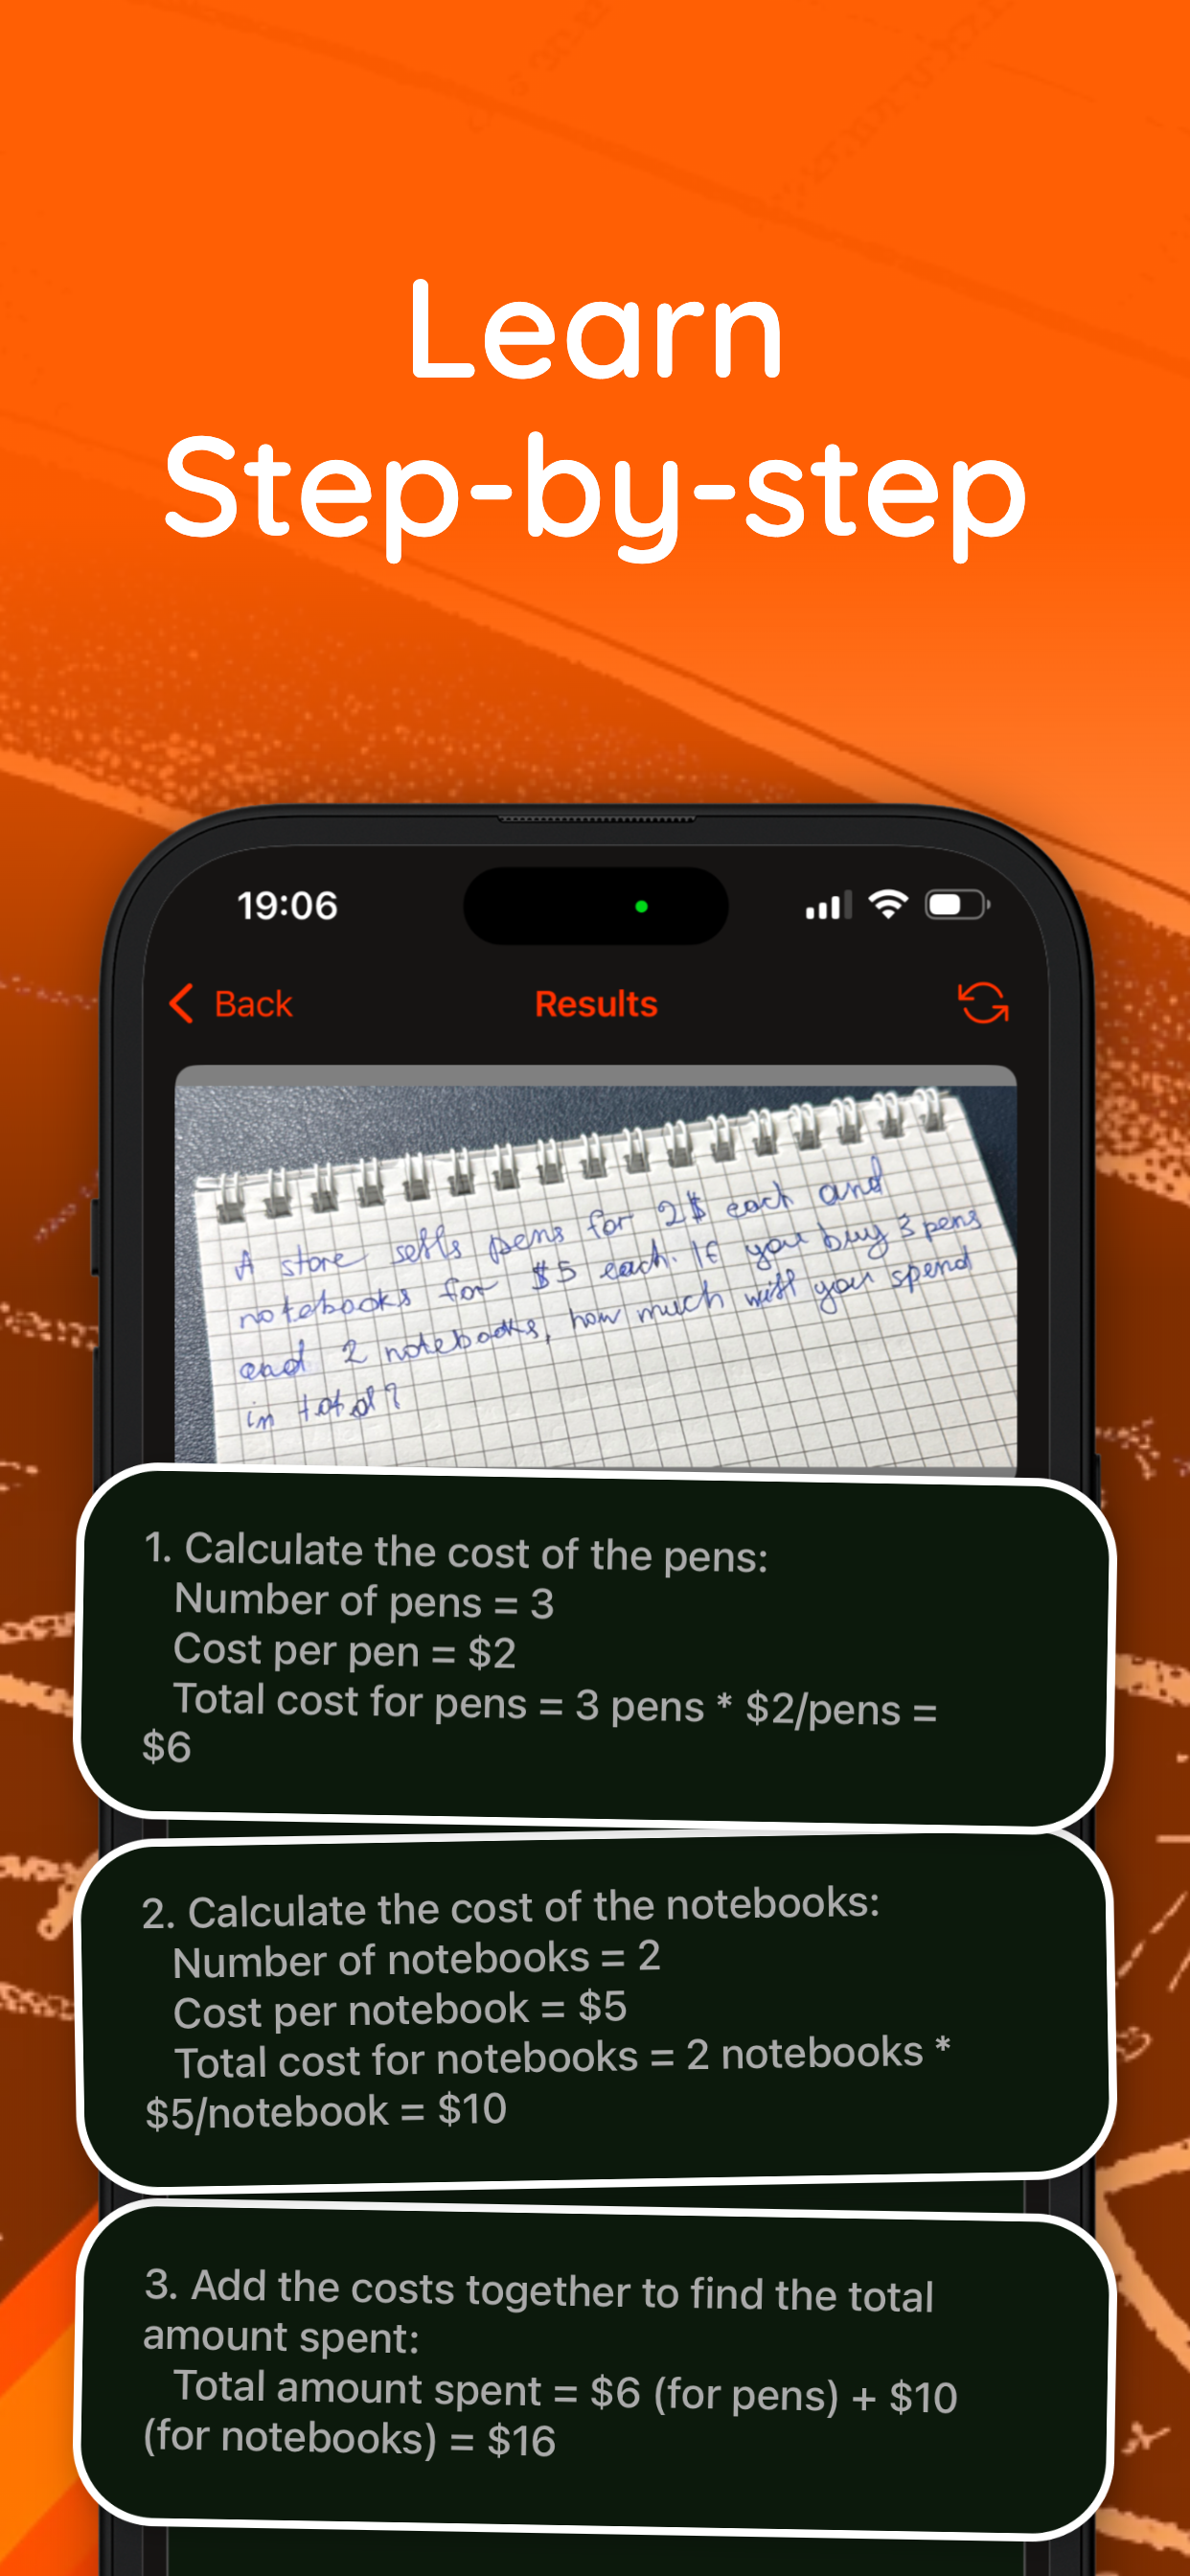 Learn
Step-by-step
19:06
Back
Results
A store sells pens for 2$ each and
notebooks for $5 each. If you buy 3 pens
and 2 notebooks, how much will you spend
in total?
1. Calculate the cost of the pens:
Number of pens = 3
Cost per pen = $2
Total cost for pens = 3 pens * $2/pens =
$6
2. Calculate the cost of the notebooks:
Number of notebooks = 2
Cost per notebook = $5
Total cost for notebooks = 2 notebooks *
$5/notebook = $10
3. Add the costs together to find the total
amount spent:
Total amount spent = $6 (for pens) + $10
(for notebooks) = $16